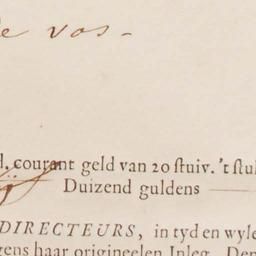 de vos.
d. courant geld van 20 ſtuiv. 't ſtu
Duizend guldens
DIRECTEURS, in tyd en wyle
gens haar origineelen Inleg. Den